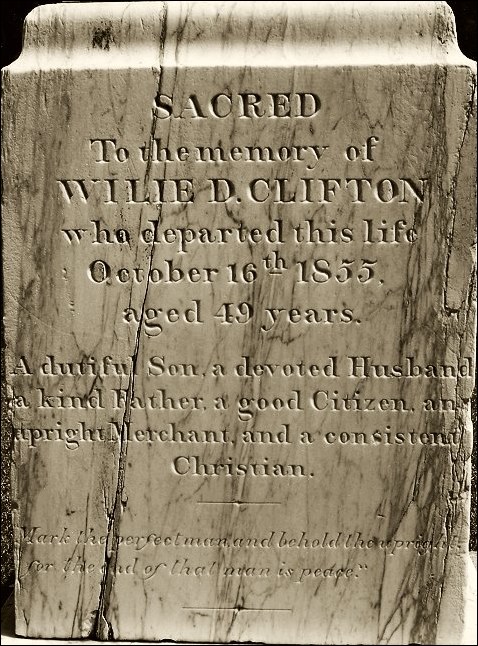 SACRED
To the memory of
WILIE D. CLIFTON
who departed this life
October 16th 1855.
aged 49 years.
A dutiful Son, a devoted Husband
a kind Father, a good Citizen, an
upright Merchant, and a consistent
Christian.
"Mark the perfect man, and behold the upright
for the end of that man is peace."